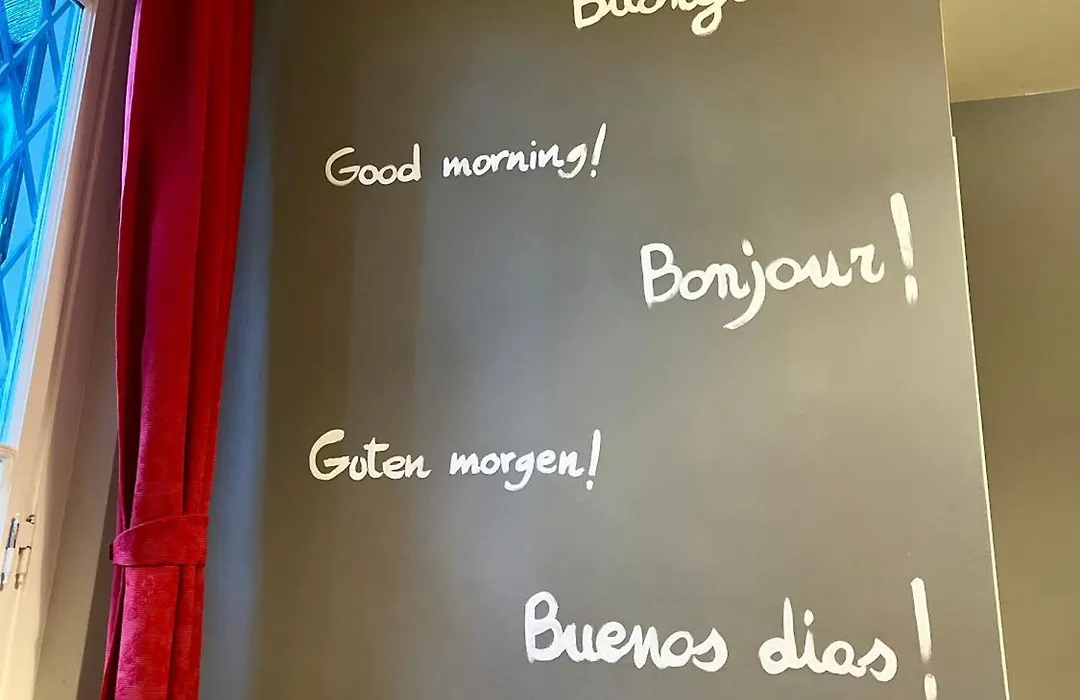 Good morning!
Bonjour!
Guten morgen!
Buenos dias!